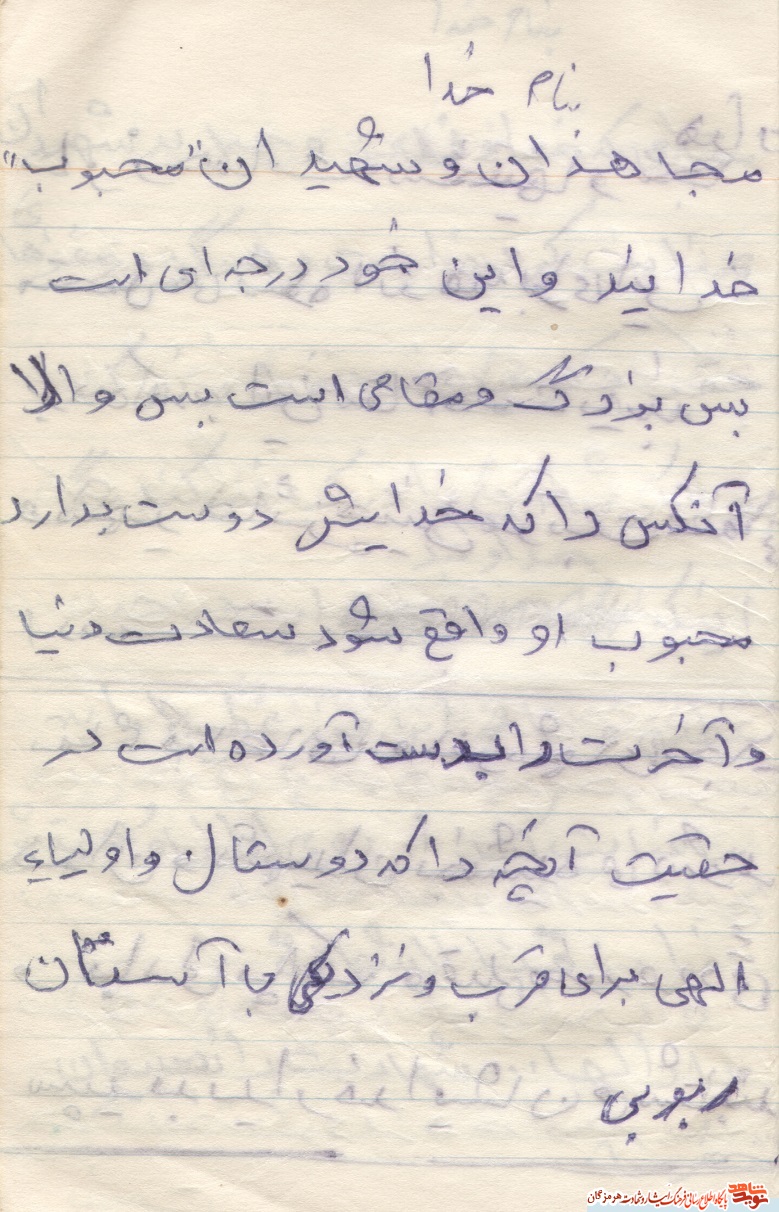 بنام خدا
مجاهدان و شهیدان "محبوب"
خدایند و این خود درجه ای است
بس بزرگ و مقامی است بس والا
آنکس را که خدایش دوست بدارد
محبوب او واقع شود سعادت دنیا
و آخرت را بدست آورده است در
حقیقت آنچه را که دوستان و اولیاء
الهی برای قرب و نزدیکی با آستان
ربوبی
نوید شاهد پایگاه اطلاع رسانی فرهنگ ایثار و شهادت هرمزگان